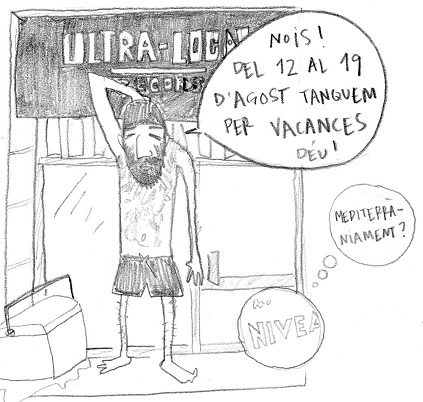 ULTRA-LOCAL
RECORDS
NOIS!
DEL 12 AL 19
D'AGOST TANQUEM
PER VACANCES
DÉU!
MEDITERRÀ-
NIAMENT?
NIVEA